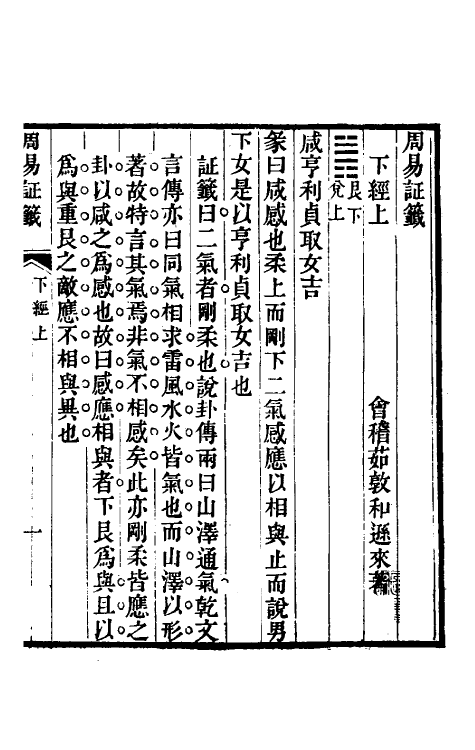 周易証籤
下經上
會稽茹敦和遜來著
艮下
兌上
咸亨利貞取女吉
彖曰咸感也柔上而剛下二氣感應以相與止而說男
下女是以亨利貞取女吉也
証籤曰二氣者剛柔也說卦傳兩曰山澤通氣乾文
言傳亦曰同氣相求雷風水火皆氣也而山澤以形
著故特言其氣焉非氣不相感矣此亦剛柔皆應之
卦以咸之為感也故曰感應相與者下艮為與且以
為與重艮之敵應不相與異也
周易証籤
下經上
一